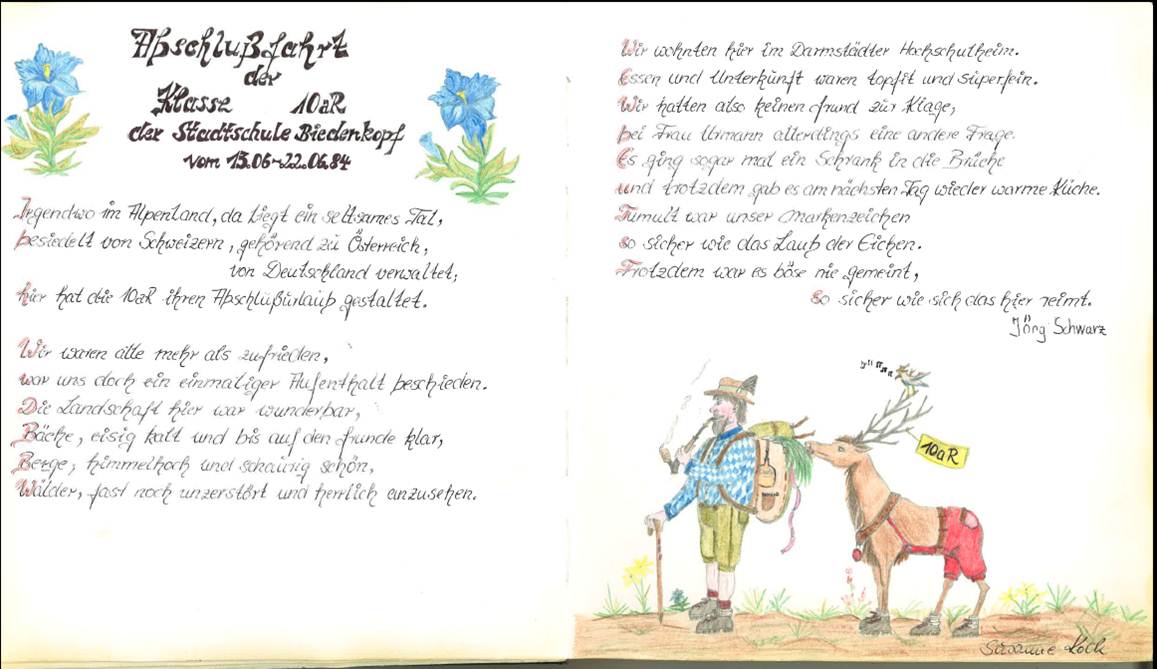 Abschlußfahrt
der
Klasse 10aR
der Stadtschule Biedenkopf
vom 13.06-22.06.84
Irgendwo im Alpenland, da liegt ein seltsames Tal,
besiedelt von Schweizern, gehörend zu Österreich,
von Deutschland verwaltet;
hier hat die 10aR ihren Abschlußurlaub gestaltet.
Wir waren alle mehr als zufrieden,
war uns doch ein einmaliger Aufenthalt beschieden.
Die Landschaft hier war wunderbar,
Bäche, eisig kalt und bis auf den Grunde klar,
Berge, himmelhoch und schaurig schön,
Wälder, fast noch unzerstört und herrlich anzusehen.
Wir wohnten hier im Darmstädter Hochschulheim.
Essen und Unterkunft waren topfit und superfein.
Wir hatten also keinen Grund zur Klage,
bei Frau Urmann allerdings eine andere Frage.
Es ging sogar mal ein Schrank in die Brüche
und trotzdem gab es am nächsten Tag wieder warme Küche.
Tumult war unser Markenzeichen
so sicher wie das Laub der Eichen.
Trotzdem war es böse nie gemeint,
so sicher wie sich das hier reimt.
Jörg Schwarz
10aR
Susanne Koch